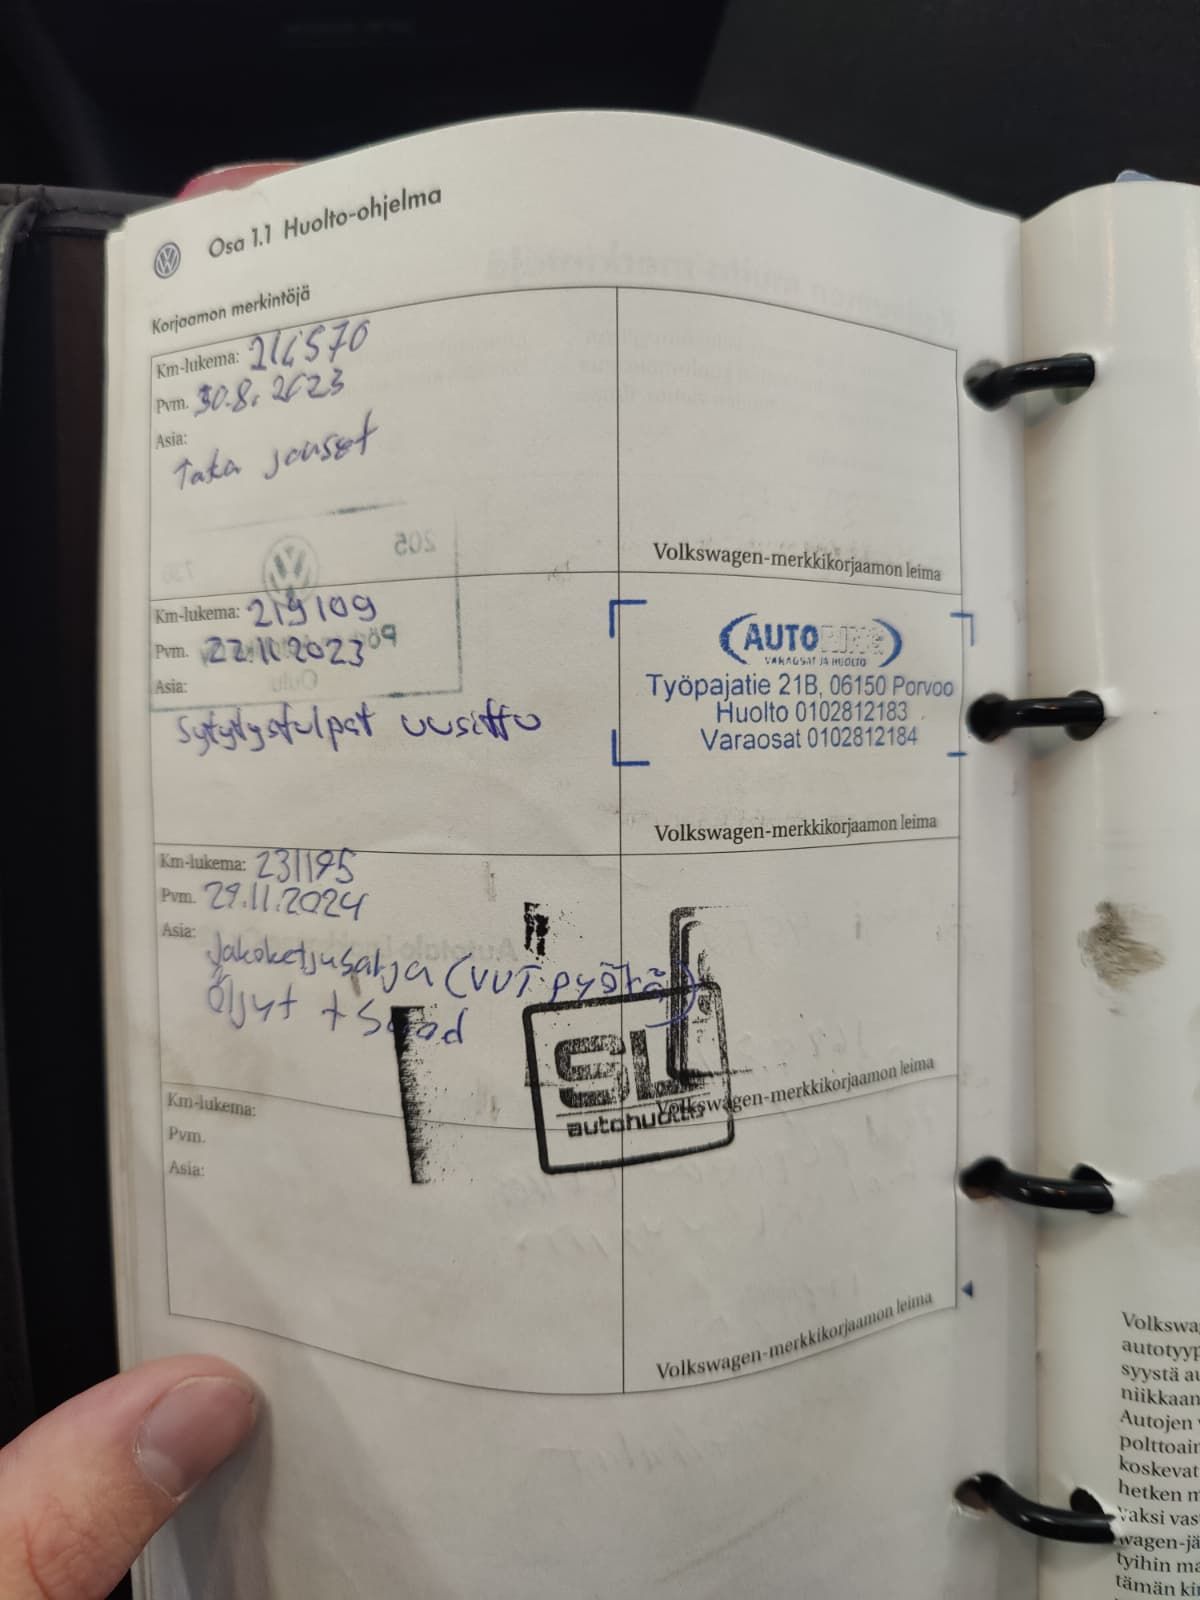 Osa 1.1 Huolto-ohjelma
Korjaamon merkintöjä
Km-lukema: 214570
Pvm. 30.8.2023
Asia:
Taka jouset
Volkswagen-merkkikorjaamon leima
Km-lukema: 219109
Pvm. 22.11.2023
Asia:
Sytytystulpat uusittu
AUTORING
VARAOSAT JA HUOLTO
Työpajatie 21B, 06150 Porvoo
Huolto 0102812183
Varaosat 0102812184
Volkswagen-merkkikorjaamon leima
Km-lukema: 231195
Pvm. 29.11.2024
Asia:
Jakoketjusarja (VVT pyörä)
Öljyt + Suod
SL
autohuolto
Volkswagen-merkkikorjaamon leima
Km-lukema:
Pvm.
Asia:
Volkswagen-merkkikorjaamon leima
Volkswa
autotyyp
syystä au
niikkaan
Autojen
polttoain
koskevat
hetken m
vaksi vas
wagen-jä
tyihin ma
tämän kir